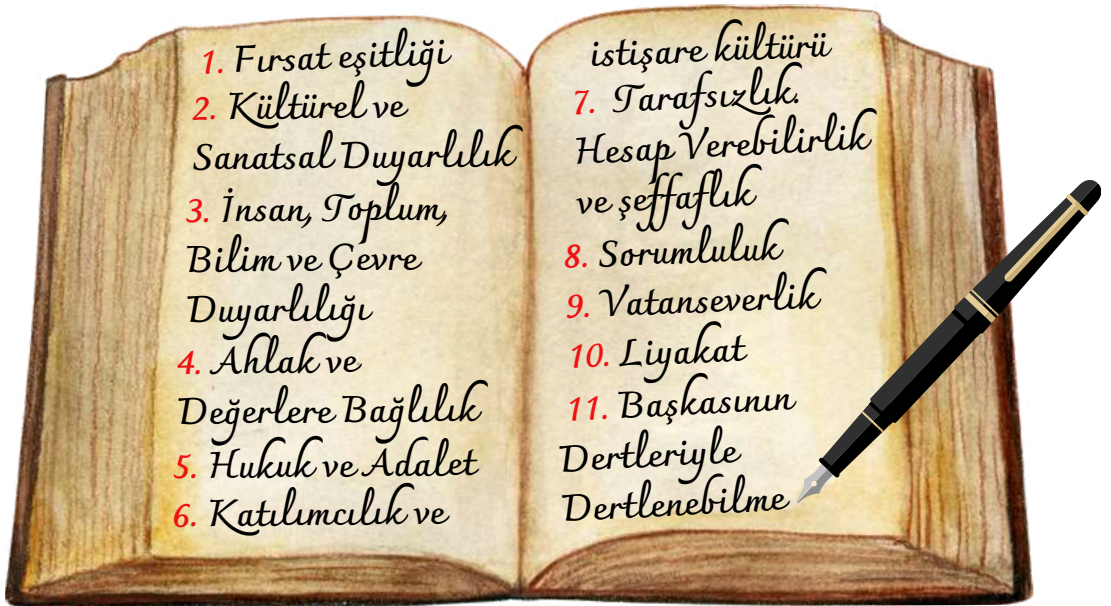 1. Fırsat eşitliği
2. Kültürel ve
Sanatsal Duyarlılık
3. İnsan, Toplum,
Bilim ve Çevre
Duyarlılığı
4. Ahlak ve
Değerlere Bağlılık
5. Hukuk ve Adalet
6. Katılımcılık ve
istişare kültürü
7. Tarafsızlık.
Hesap Verebilirlik
ve şeffaflık
8. Sorumluluk
9. Vatanseverlik
10. Liyakat
11. Başkasının
Dertleriyle
Dertlenebilme